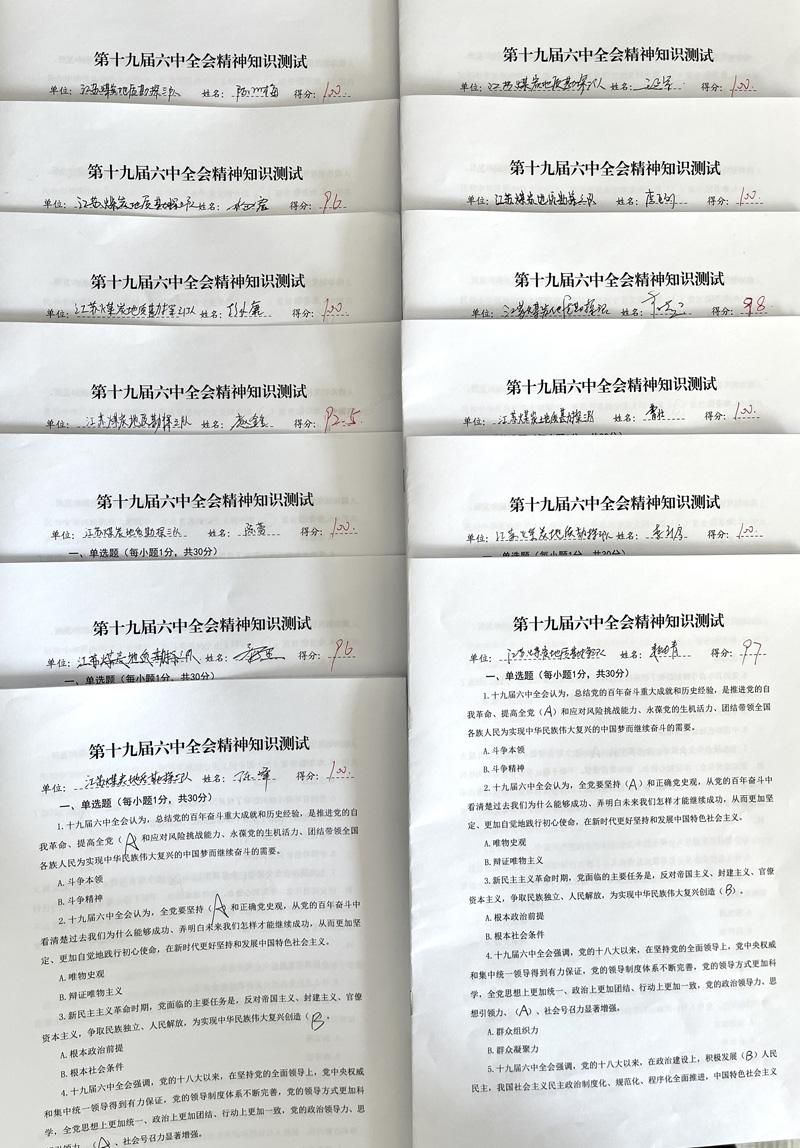 第十九届六中全会精神知识测试
单位：江苏煤炭地质勘探三队 姓名： 得分：100.
第十九届六中全会精神知识测试
单位：江苏煤炭地质勘探三队 姓名： 得分：96
第十九届六中全会精神知识测试
单位：江苏煤炭地质勘探三队 姓名： 得分：100.
第十九届六中全会精神知识测试
单位：江苏煤炭地质勘探三队 姓名： 得分：92.5
第十九届六中全会精神知识测试
单位：江苏煤炭地质勘探三队 姓名： 得分：100.
一、单选题（每小题1分，共30分）
第十九届六中全会精神知识测试
单位：江苏煤炭地质勘探三队 姓名： 得分：96
一、单选题（每小题1分，共30分）
第十九届六中全会精神知识测试
单位：江苏煤炭地质勘探三队 姓名： 得分：100.
一、单选题（每小题1分，共30分）
1.十九届六中全会认为，总结党的百年奋斗重大成就和历史经验，是推进党的自
我革命、提高全党（A）和应对风险挑战能力、永葆党的生机活力、团结带领全国
各族人民为实现中华民族伟大复兴的中国梦而继续奋斗的需要。
A.斗争本领
B.斗争精神
2.十九届六中全会认为，全党要坚持（A）和正确党史观，从党的百年奋斗中
看清楚过去我们为什么能够成功、弄明白未来我们怎样才能继续成功，从而更加坚
定、更加自觉地践行初心使命，在新时代更好坚持和发展中国特色社会主义。
A.唯物史观
B.辩证唯物主义
3.新民主主义革命时期，党面临的主要任务是，反对帝国主义、封建主义、官僚
资本主义，争取民族独立、人民解放，为实现中华民族伟大复兴创造（B）。
A.根本政治前提
B.根本社会条件
4.十九届六中全会强调，党的十八大以来，在坚持党的全面领导上，党中央权威
和集中统一领导得到有力保证，党的领导制度体系不断完善，党的领导方式更加科
学，全党思想上更加统一、政治上更加团结、行动上更加一致，党的政治领导力、思
想引领力、（A）、社会号召力显著增强。
第十九届六中全会精神知识测试
单位：江苏煤炭地质勘探三队 姓名： 得分：100.
第十九届六中全会精神知识测试
单位：江苏煤炭地质勘探三队 姓名： 得分：100.
第十九届六中全会精神知识测试
单位：江苏煤炭地质勘探三队 姓名： 得分：98
第十九届六中全会精神知识测试
单位：江苏煤炭地质勘探三队 姓名： 得分：100.
第十九届六中全会精神知识测试
单位：江苏煤炭地质勘探三队 姓名： 得分：100.
一、单选题（每小题1分，共30分）
第十九届六中全会精神知识测试
单位：江苏煤炭地质勘探三队 姓名： 得分：97
一、单选题（每小题1分，共30分）
1.十九届六中全会认为，总结党的百年奋斗重大成就和历史经验，是推进党的自
我革命、提高全党（A）和应对风险挑战能力、永葆党的生机活力、团结带领全国
各族人民为实现中华民族伟大复兴的中国梦而继续奋斗的需要。
A.斗争本领
B.斗争精神
2.十九届六中全会认为，全党要坚持（A）和正确党史观，从党的百年奋斗中
看清楚过去我们为什么能够成功、弄明白未来我们怎样才能继续成功，从而更加坚
定、更加自觉地践行初心使命，在新时代更好坚持和发展中国特色社会主义。
A.唯物史观
B.辩证唯物主义
3.新民主主义革命时期，党面临的主要任务是，反对帝国主义、封建主义、官僚
资本主义，争取民族独立、人民解放，为实现中华民族伟大复兴创造（B）。
A.根本政治前提
B.根本社会条件
4.十九届六中全会强调，党的十八大以来，在坚持党的全面领导上，党中央权威
和集中统一领导得到有力保证，党的领导制度体系不断完善，党的领导方式更加科
学，全党思想上更加统一、政治上更加团结、行动上更加一致，党的政治领导力、思
想引领力、（A）、社会号召力显著增强。
A.群众组织力
B.群众凝聚力
5.十九届六中全会强调，党的十八大以来，在政治建设上，积极发展（B）人民
民主，我国社会主义民主政治制度化、规范化、程序化全面推进，中国特色社会主义